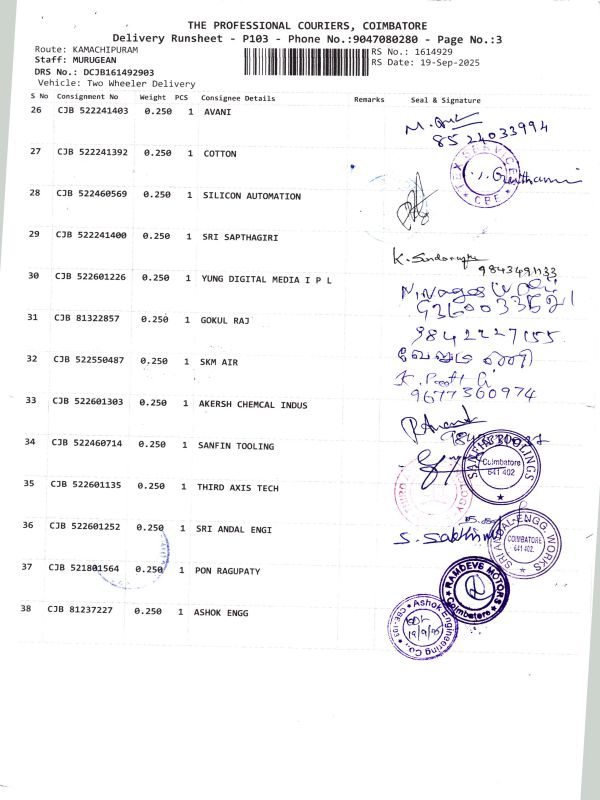 THE PROFESSIONAL COURIERS, COIMBATORE
Delivery Runsheet - P103 - Phone No.:9047080280 - Page No.:3
Route: KAMACHIPURAM
RS No.: 1614929
Staff: MURUGEAN
RS Date: 19-Sep-2025
DRS No.: DCJB161492903
Vehicle: Two Wheeler Delivery
S No Consignment No Weight PCS Consignee Details Remarks Seal & Signature
26 CJB 522241403 0.250 1 AVANI
8524033994
27 CJB 522241392 0.250 1 COTTON
TEX SERVICES
CBE
28 CJB 522460569 0.250 1 SILICON AUTOMATION
29 CJB 522241400 0.250 1 SRI SAPTHAGIRI
30 CJB 522601226 0.250 1 YUNG DIGITAL MEDIA I P L
31 CJB 81322857 0.250 1 GOKUL RAJ
9842227155
32 CJB 522550487 0.250 1 SKM AIR
9677360974
33 CJB 522601303 0.250 1 AKERSH CHEMCAL INDUS
34 CJB 522460714 0.250 1 SANFIN TOOLING
SANFIN TOOLINGS
Coimbatore
641 402
35 CJB 522601135 0.250 1 THIRD AXIS TECH
36 CJB 522601252 0.250 1 SRI ANDAL ENGI
S. Sakthi
SRI ANDAL ENGG WORKS
COIMBATORE
641 402.
37 CJB 521801564 0.250 1 PON RAGUPATY
RAMDEVS MOTORS
Coimbatore
38 CJB 81237227 0.250 1 ASHOK ENGG
Ashok Engineering Co.,
CBE-103
19/9/25